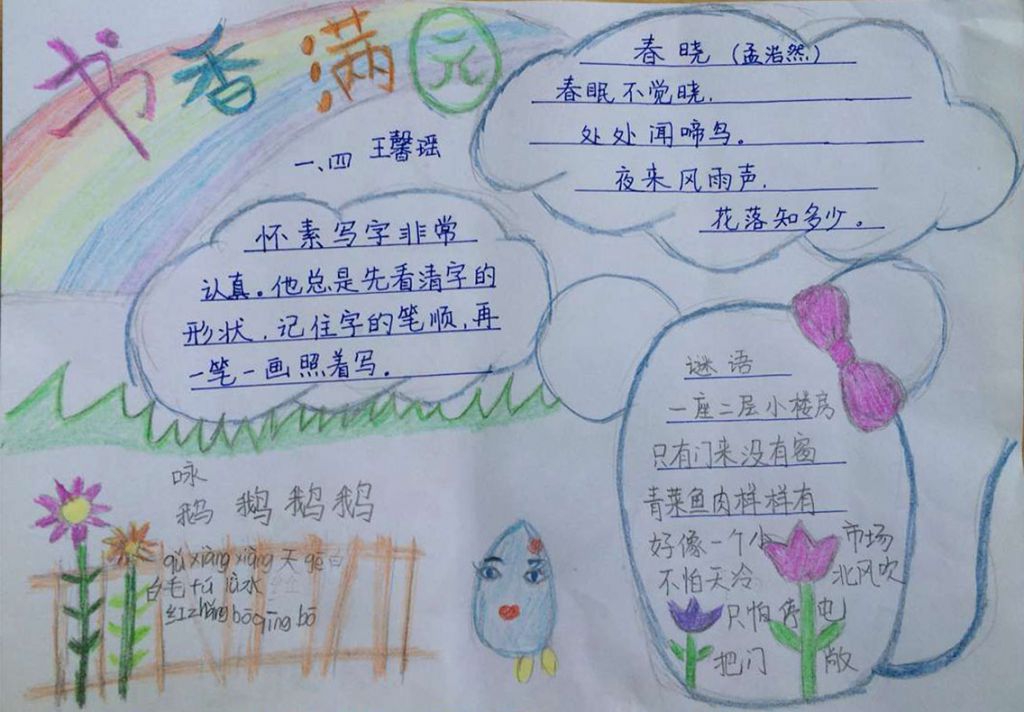 书香满元
一、四 王馨瑶
春晓(孟浩然)
春眠不觉晓.
处处闻啼鸟。
夜来风雨声.
花落知多少。
怀素写字非常
认真。他总是先看清字的
形状.记住字的笔顺,再
一笔一画照着写.
谜语
一座二层小楼房
只有门来没有窗
青菜鱼肉样样有
好像一个小市场
不怕天冷北风吹
只怕停电
把门敞
咏
鹅 鹅鹅鹅
qǔ xiàng xiàng 天 gē
白毛 fú lǜ水
红zhǎng bō qīng bō